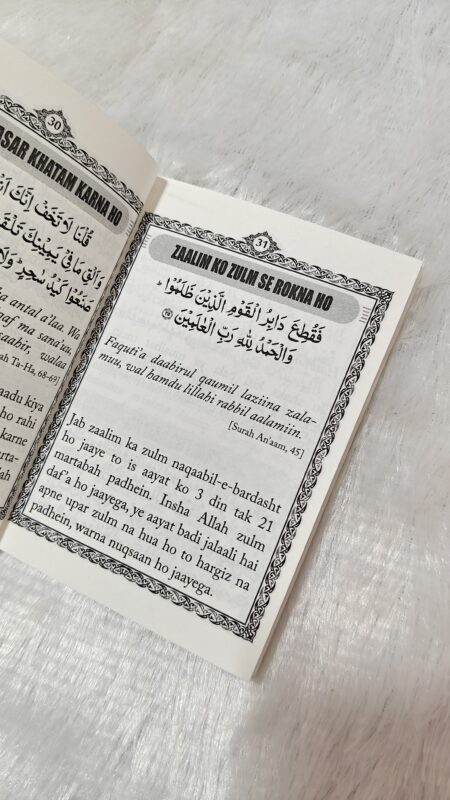 30
ASAR KHATAM KARNA HO
قُلْنَا لَا تَخَفْ اِنَّكَ
وَاَلْقِ مَا فِیْ یَمِیْنِكَ تَلْقَفْ
صَنَعُوْا كَیْدُ سٰحِرٍ وَلَا
antal a'laa. Wa
ma sana'uu,
saahir, walaa
Ta-Ha, 68-69
aadu kiya
ho rahi
karne
marta-
llah
31
ZAALIM KO ZULM SE ROKNA HO
فَقُطِعَ دَابِرُ الْقَوْمِ الَّذِیْنَ ظَلَمُوْا ؕ
وَالْحَمْدُ لِلّٰهِ رَبِّ الْعٰلَمِیْنَ
Faquti'a daabirul qaumil laziina zala-
muu, wal hamdu lillahi rabbil aalamiin.
[Surah An'aam, 45]
Jab zaalim ka zulm naqaabil-e-bardasht
ho jaaye to is aayat ko 3 din tak 21
martabah padhein. Insha Allah zulm
daf'a ho jaayega, ye aayat badi jalaali hai
apne upar zulm na hua ho to hargiz na
padhein, warna nuqsaan ho jaayega.